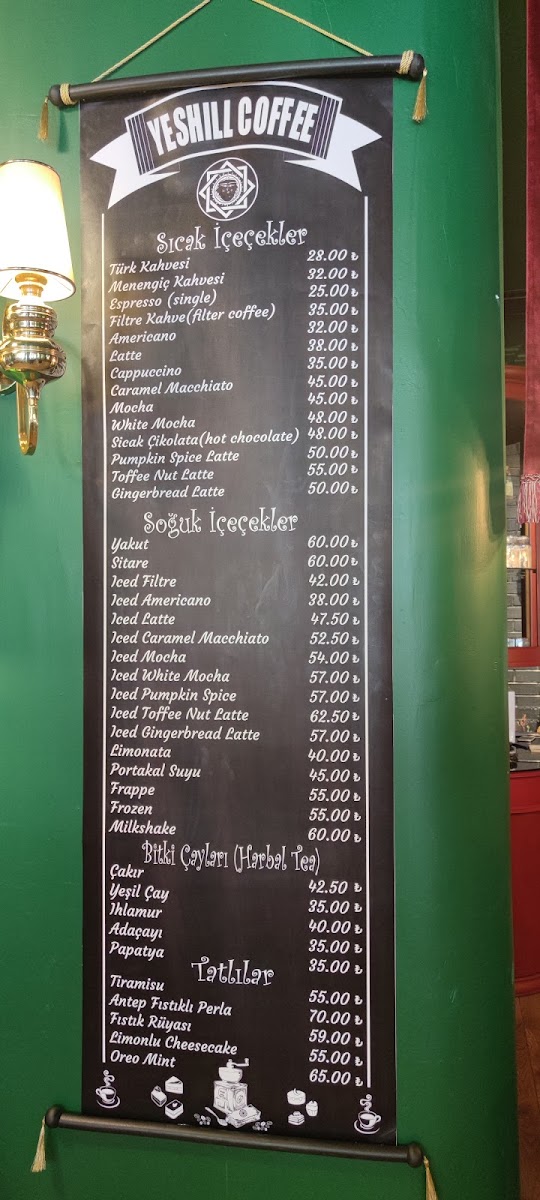 YESHILL COFFEE
Sıcak İçeçekler
Türk Kahvesi 28.00 ₺
Menengiç Kahvesi 32.00 ₺
Espresso (single) 25.00 ₺
Filtre Kahve(filter coffee) 35.00 ₺
Americano 32.00 ₺
Latte 38.00 ₺
Cappuccino 35.00 ₺
Caramel Macchiato 45.00 ₺
Mocha 45.00 ₺
White Mocha 48.00 ₺
Sicak Çikolata(hot chocolate) 48.00 ₺
Pumpkin Spice Latte 50.00 ₺
Toffee Nut Latte 55.00 ₺
Gingerbread Latte 50.00 ₺
Soğuk İçeçekler
Yakut 60.00 ₺
Sitare 60.00 ₺
Iced Filtre 42.00 ₺
Iced Americano 38.00 ₺
Iced Latte 47.50 ₺
Iced Caramel Macchiato 52.50 ₺
Iced Mocha 54.00 ₺
Iced White Mocha 57.00 ₺
Iced Pumpkin Spice 57.00 ₺
Iced Toffee Nut Latte 62.50 ₺
Iced Gingerbread Latte 57.00 ₺
Limonata 40.00 ₺
Portakal Suyu 45.00 ₺
Frappe 55.00 ₺
Frozen 55.00 ₺
Milkshake 60.00 ₺
Bitki Çayları (Harbal Tea)
Çakır 42.50 ₺
Yeşil Çay 35.00 ₺
Ihlamur 40.00 ₺
Adaçayı 35.00 ₺
Papatya 35.00 ₺
Tatlılar
Tiramisu 55.00 ₺
Antep Fıstıklı Perla 70.00 ₺
Fıstık Rüyası 59.00 ₺
Limonlu Cheesecake 55.00 ₺
Oreo Mint 65.00 ₺